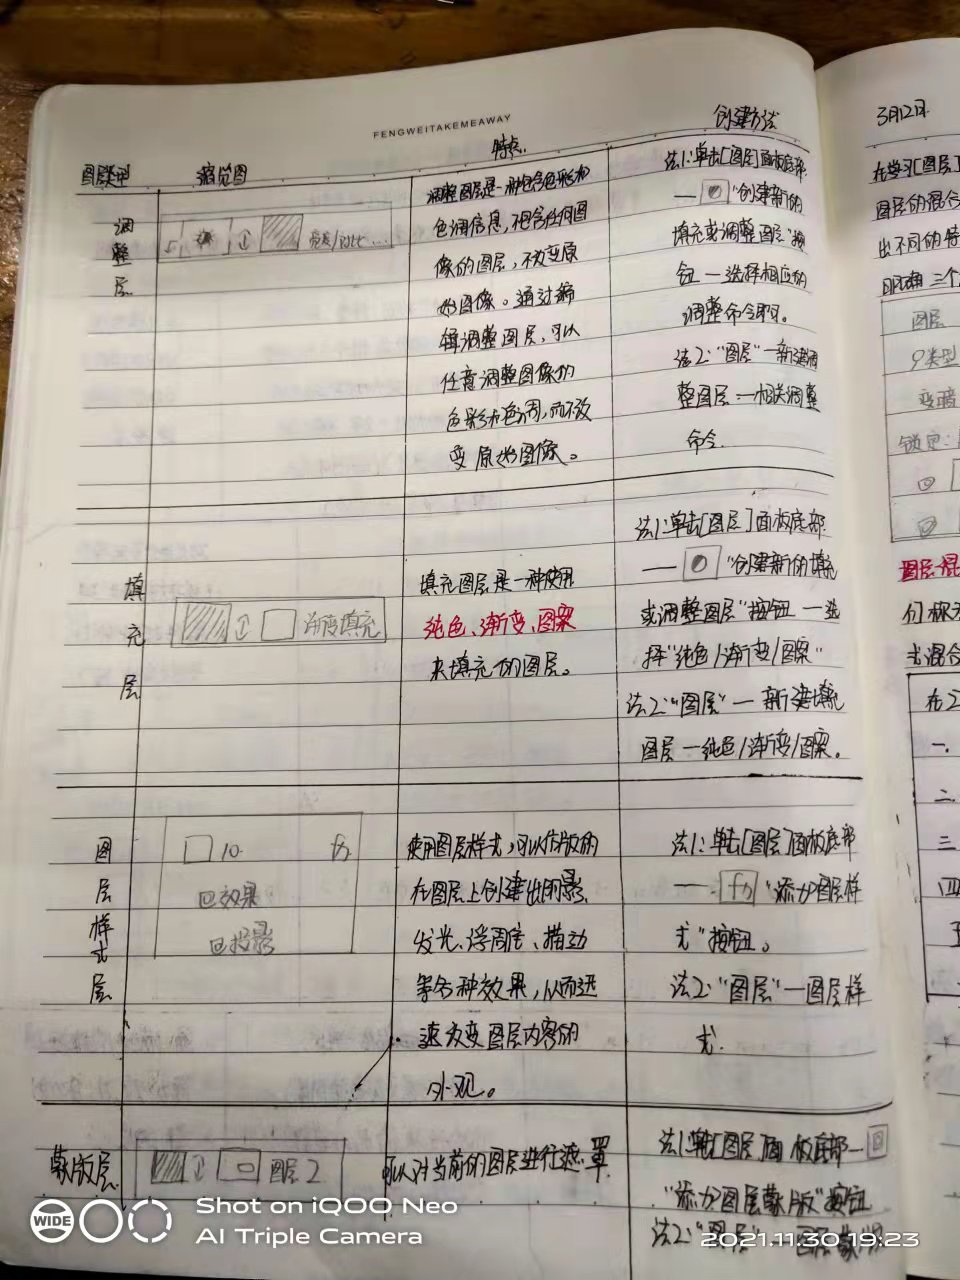 FENGWEITAKEMEAWAY
图层类型 缩览图 特点 创建方法
调整层
亮度/对比...
调整图层是一种包含色彩和
色调信息,不包含任何图
像的图层,不改变原
始图像。通过编
辑调整图层,可以
任意调整图像的
色彩和色调,而不改
变原始图像。
法1:单击[图层]面板底部
— "创建新的
填充或调整图层"按
钮—选择相应的
调整命令即可。
法2:"图层"—新建调
整图层—相关调整
命令.
填充层
渐变填充
填充图层是一种使用
纯色、渐变、图案
来填充的图层。
法1:单击[图层]面板底部
— "创建新的填充
或调整图层"按钮—选
择"纯色/渐变/图案"
法2:"图层"—新建填充
图层—纯色/渐变/图案。
图层样式层
10 fx
效果
投影
使用图层样式,可以
在图层上创建出阴影
发光、浮
等各种效果,从而迅
速改变图层内容的
外观。
法1:单击[图层]面板底部
— fx "添加图层样
式"按钮。
法2:"图层"—图层样
式.
蒙版层
图层2
可以对当前的图层进行遮罩
法1:单击[图层]面板底部—
"添加图层蒙版"按钮
法2:"图层"—图层蒙版
3月12日
在学习[图层]
图层的混合
出不同的特
图层
变暗
锁定:
图层混
们称
式混合
在
一.
二.
三
四
五
WIDE
Shot on iQOO Neo
AI Triple Camera
2021.11.30 19:23